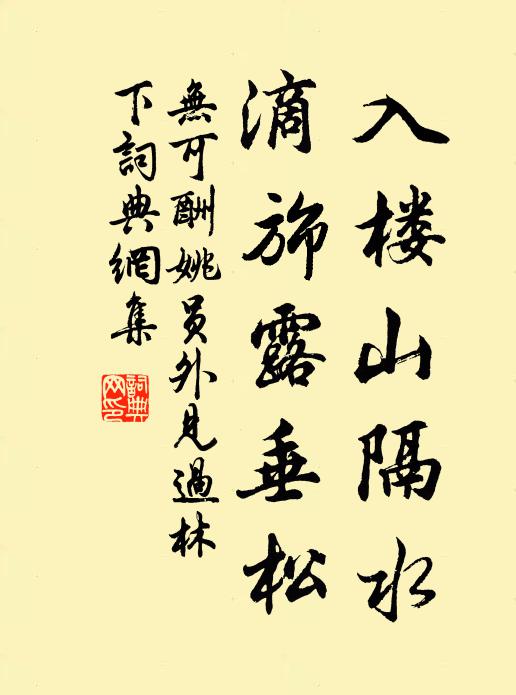 入楼山隔水
滴旆露垂松
無可酬姚員外見過林
下詞典網集
詞典
网印